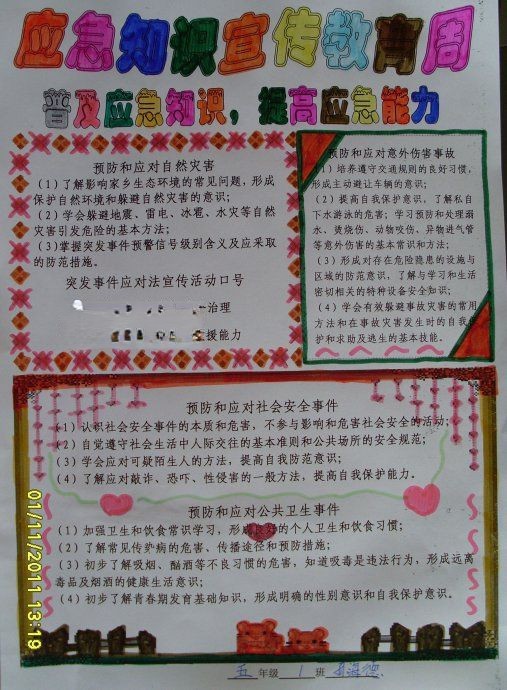 应急知识宣传教育周
普及应急知识，提高应急能力
预防和应对自然灾害
(1)了解影响家乡生态环境的常见问题，形成
保护自然环境和躲避自然灾害的意识；
(2)学会躲避地震、雷电、冰雹、水灾等自然
灾害引发危险的基本方法；
(3)掌握突发事件预警信号级别含义及应采取
的防范措施。
突发事件应对法宣传活动口号
治理
援能力
预防和应对意外伤害事故
(1)培养遵守交通规则的良好习惯，
形成主动避让车辆的意识；
(2)提高自我保护意识，了解私自
下水游泳的危害；学习预防和处理溺
水、烫烧伤、动物咬伤、异物进气管
等意外伤害的基本常识和方法；
(3)形成对存在危险隐患的设施与
区域的防范意识，了解与学习和生活
密切相关的特种设备安全知识；
(4)学会有效躲避事故灾害的常用
方法和在事故灾害发生时的自我保
护和求助及逃生的基本技能。
预防和应对社会安全事件
(1)认识社会安全事件的本质和危害，不参与影响和危害社会安全的活动；
(2)自觉遵守社会生活中人际交往的基本准则和公共场所的安全规范；
(3)学会应对可疑陌生人的方法，提高自我防范意识；
(4)了解应对敲诈、恐吓、性侵害的一般方法，提高自我保护能力。
预防和应对公共卫生事件
(1)加强卫生和饮食常识学习，形成良好的个人卫生和饮食习惯；
(2)了解常见传染病的危害、传播途径和预防措施；
(3)初步了解吸烟、酗酒等不良习惯的危害，知道吸毒是违法行为，形成远离
毒品及烟酒的健康生活意识；
(4)初步了解青春期发育基础知识，形成明确的性别意识和自我保护意识。
五年级1班
01/11/2011 13:19